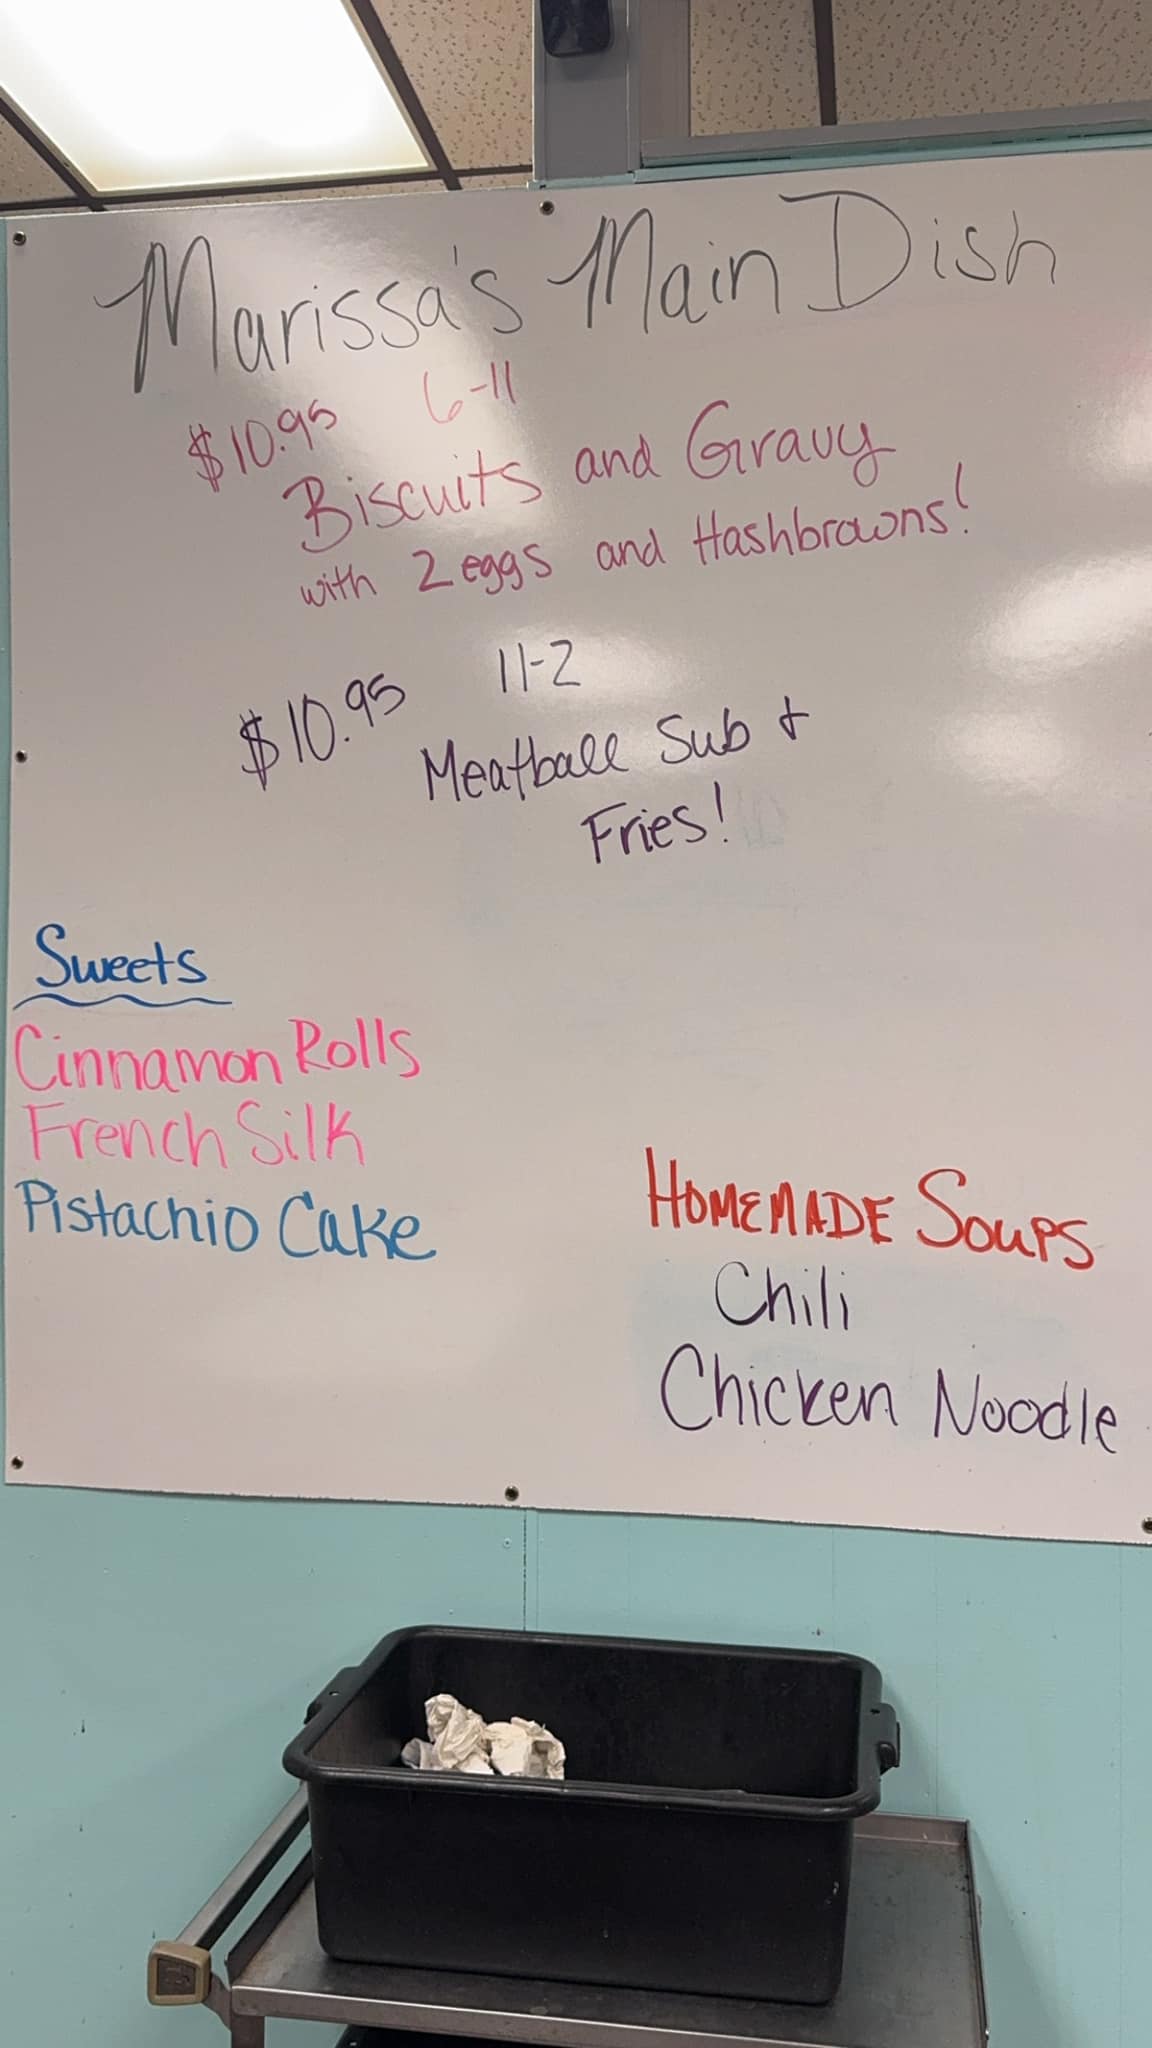 Marissa's Main Dish
$10.95 6-11
Biscuits and Gravy
with 2 eggs and Hashbrowns!
$10.95 11-2
Meatball Sub +
Fries!
Sweets
Cinnamon Rolls
French Silk
Pistachio Cake
HOMEMADE SOUPS
Chili
Chicken Noodle